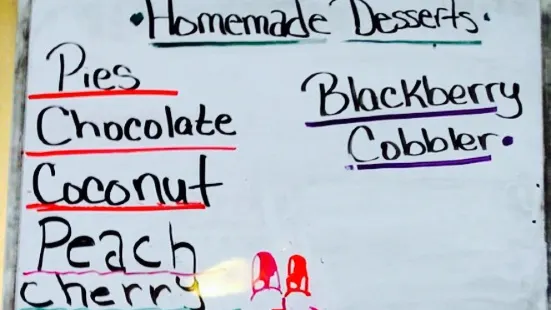 • Homemade Desserts •
Pies
Chocolate
Coconut
Peach
cherry
Blackberry
Cobbler •